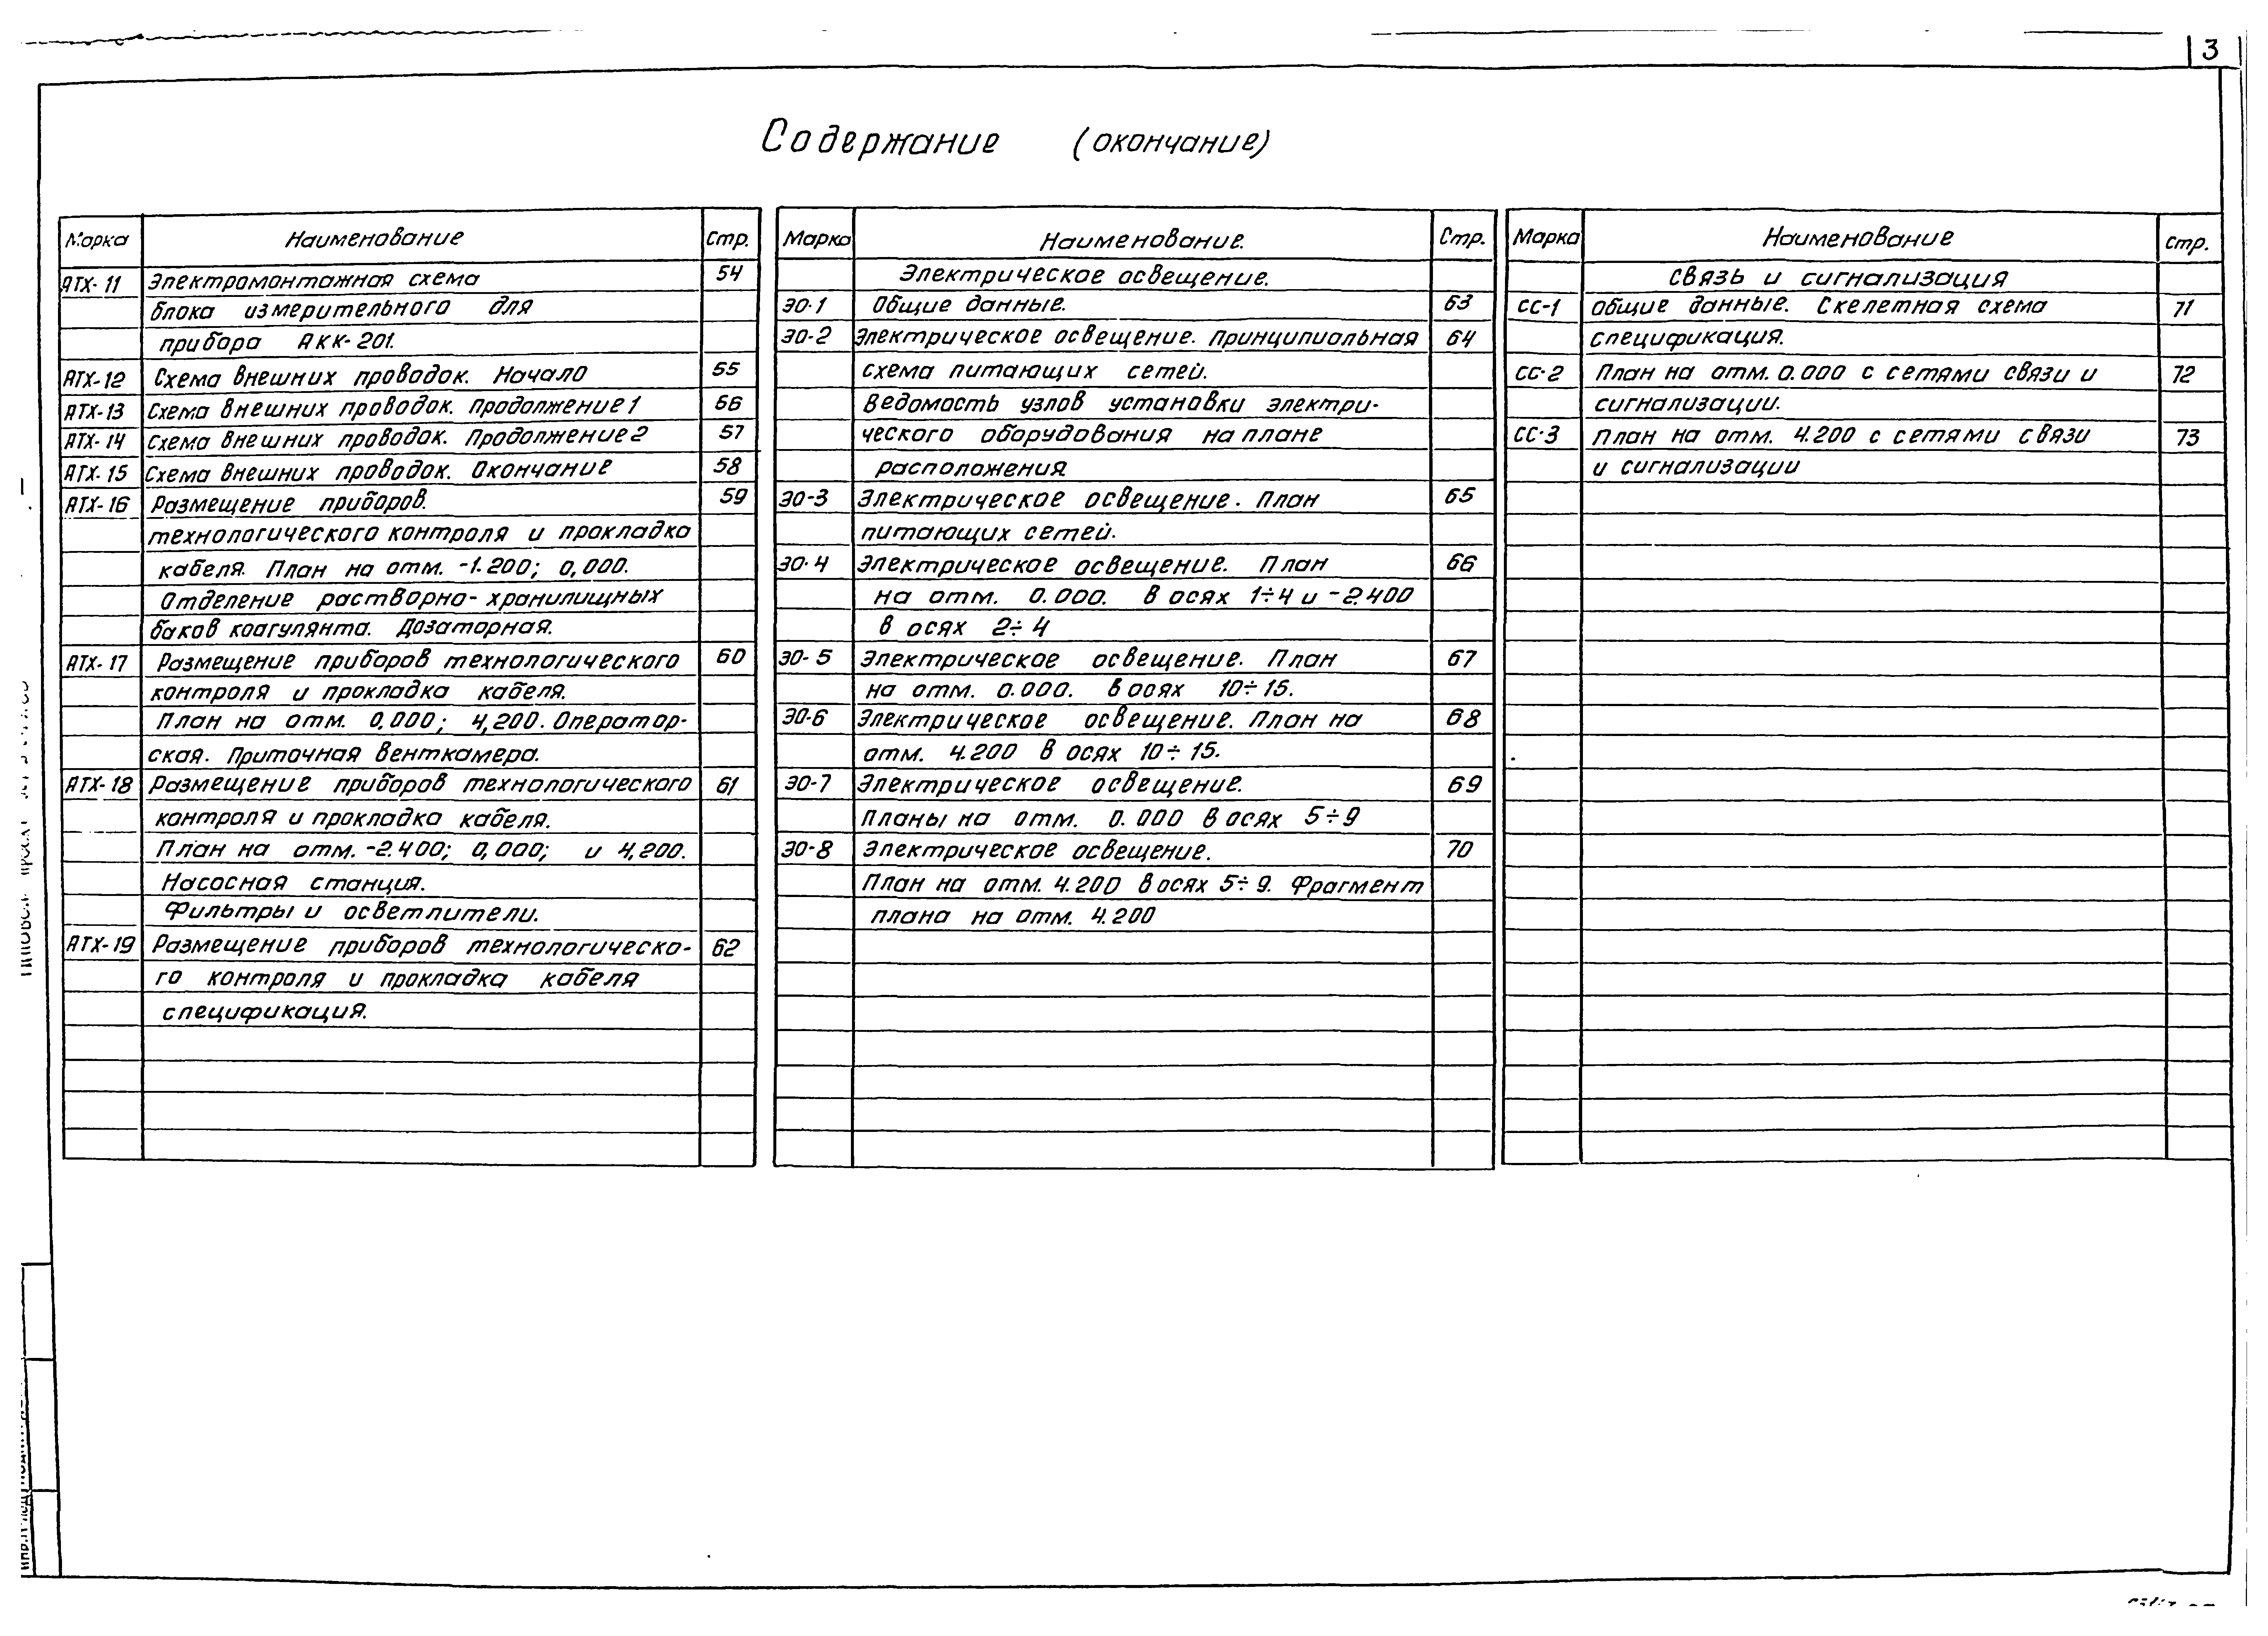 3
Содержание (окончание)
Марка Наименование Стр.
АТХ-11 Электромонтажная схема 54
блока измерительного для
прибора АКК-201.
АТХ-12 Схема внешних проводок. Начало 55
АТХ-13 Схема внешних проводок. Продолжение 1 56
АТХ-14 Схема внешних проводок. Продолжение 2 57
АТХ-15 Схема внешних проводок. Окончание 58
АТХ-16 Размещение приборов. 59
технологического контроля и прокладка
кабеля. План на отм. -1.200; 0,000.
Отделение растворно-хранилищных
баков коагулянта. Дозаторная.
АТХ-17 Размещение приборов технологического 60
контроля и прокладка кабеля.
План на отм. 0,000; 4,200. Оператор-
ская. Приточная венткамера.
АТХ-18 Размещение приборов технологического 61
контроля и прокладка кабеля.
План на отм. -2.400; 0,000; и 4,200.
Насосная станция.
Фильтры и осветлители.
АТХ-19 Размещение приборов технологическо- 62
го контроля и прокладка кабеля
спецификация.
Марка Наименование. Стр.
Электрическое освещение.
ЭО-1 Общие данные. 63
ЭО-2 Электрическое освещение. Принципиальная 64
схема питающих сетей.
Ведомость узлов установки электри-
ческого оборудования на плане
расположения
ЭО-3 Электрическое освещение. План 65
питающих сетей.
ЭО-4 Электрическое освещение. План 66
на отм. 0.000. в осях 1÷4 и -2.400
в осях 2÷4
ЭО-5 Электрическое освещение. План 67
на отм. 0.000. в осях 10÷15.
ЭО-6 Электрическое освещение. План на 68
отм. 4.200 в осях 10÷15.
ЭО-7 Электрическое освещение. 69
Планы на отм. 0.000 в осях 5÷9
ЭО-8 Электрическое освещение. 70
План на отм. 4.200 в осях 5÷9. Фрагмент
плана на отм. 4.200
Марка Наименование Стр.
Связь и сигнализация
СС-1 Общие данные. Скелетная схема 71
спецификация.
СС-2 План на отм. 0.000 с сетями связи и 72
сигнализации.
СС-3 План на отм. 4.200 с сетями связи 73
и сигнализации